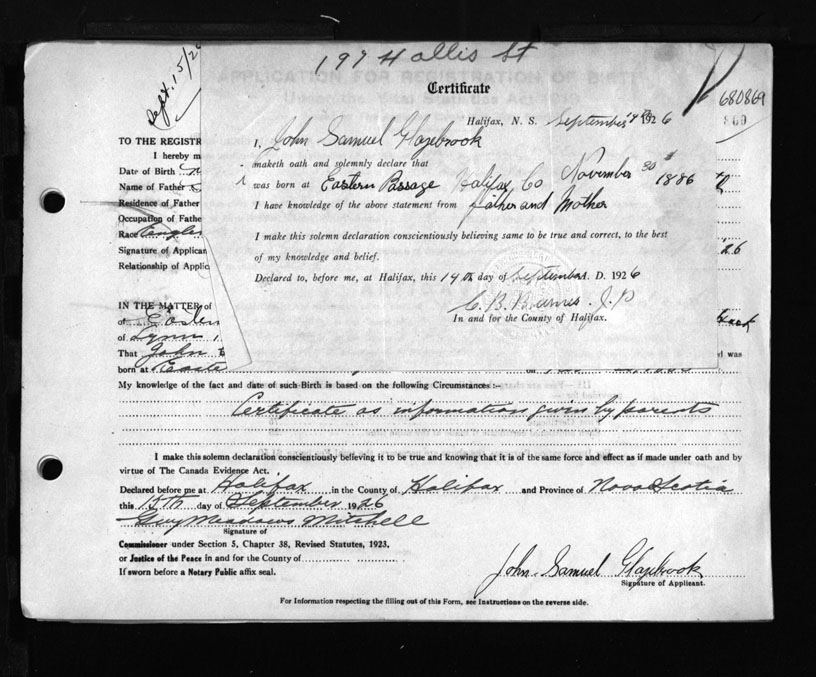 197 Hollis St
Sept. 15/26
Certificate
680869
Halifax, N. S. September 14th 1926
869
I, John Samuel Glazebrook
maketh oath and solemnly declare that
was born at Eastern Passage Halifax Co November 30 1886
I have knowledge of the above statement from Father and Mother
I make this solemn declaration conscientiously believing same to be true and correct, to the best
of my knowledge and belief.
Declared to, before me, at Halifax, this 14th day of September A. D. 1926
C. B. Barnes J. P
In and for the County of Halifax.
TO THE REGISTR
I hereby m
Date of Birth
Name of Father
Residence of Father
Occupation of Fathe
Race
Signature of Applican
Relationship of Applic
26
IN THE MATTER of
of Easter
of Lynn
That John
born at Easte
d was
on
My knowledge of the fact and date of such Birth is based on the following Circumstances :-
Certificate as information given by parents
I make this solemn declaration conscientiously believing it to be true and knowing that it is of the same force and effect as if made under oath and by
virtue of The Canada Evidence Act.
Declared before me at Halifax in the County of Halifax and Province of Nova Scotia
this 15th day of September 1926
Guy Meadows Mitchell
Signature of
Commissioner under Section 5, Chapter 38, Revised Statutes, 1923,
or Justice of the Peace in and for County of
If sworn before a Notary Public affix seal.
John Samuel Glazebrook
Signature of Applicant.
For Information respecting the filling out of this Form, see Instructions on the reverse side.